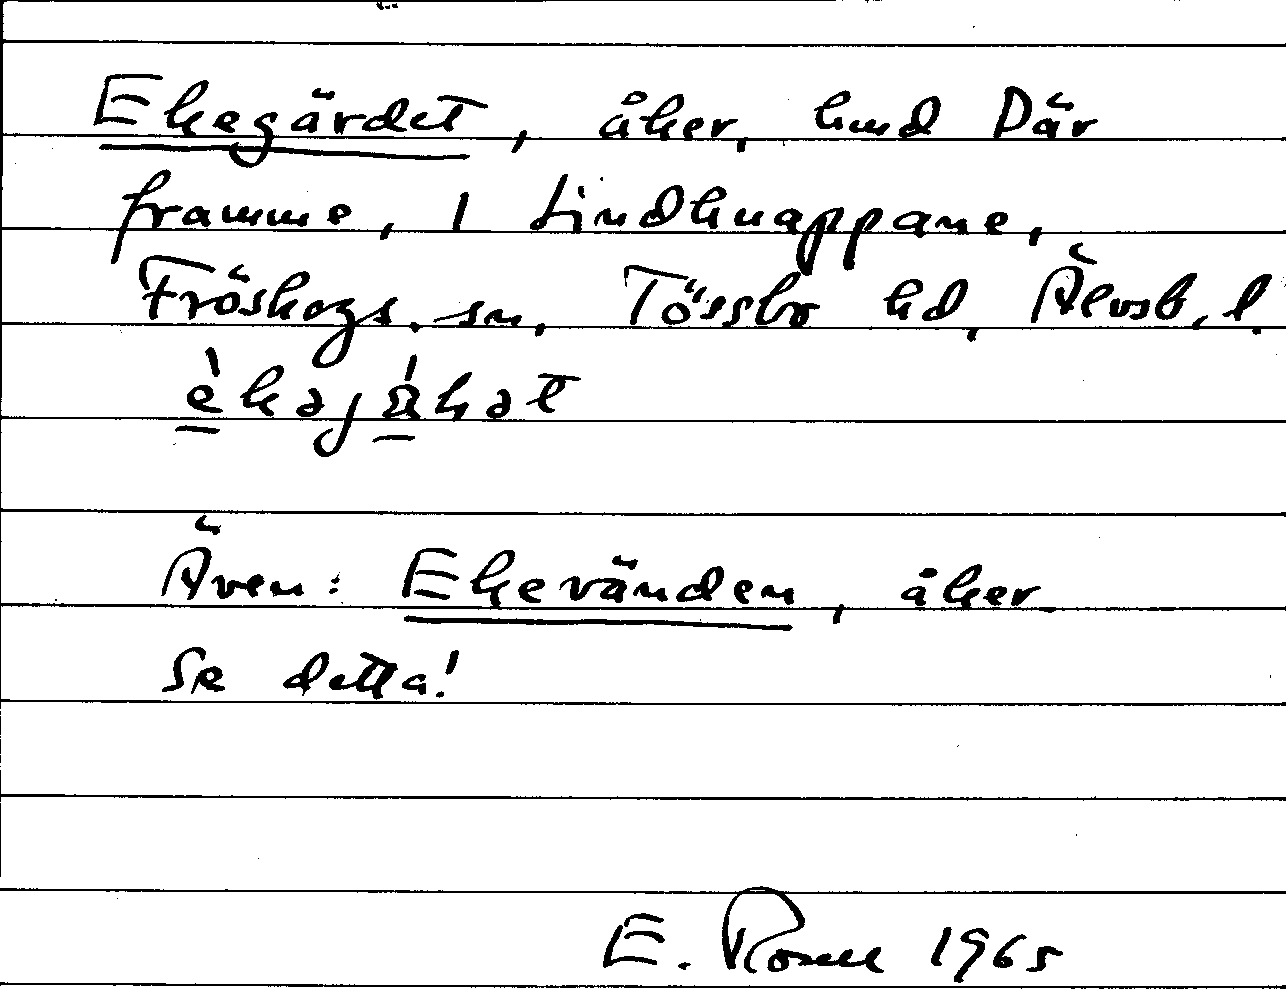 Ekegärdet, åker, hmd Där
framme, 1 Lindknappane,
Fröskogs. sn, Tössbo hd, Älvsb. l.
Även: Ekevänden, åker.
Se detta!
E. 1965